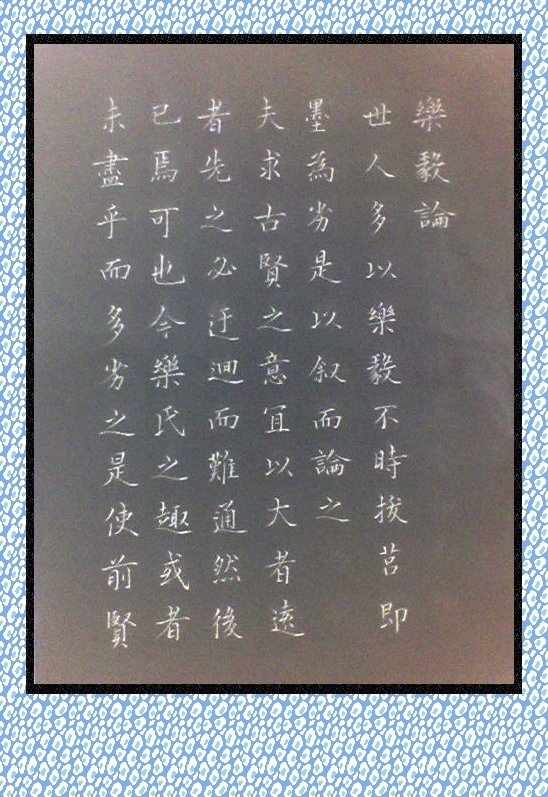 樂毅論
世人多以樂毅不時拔莒即
墨為劣是以叙而論之
夫求古賢之意宜以大者遠
者先之必迂迴而難通然後
已焉可也今樂氏之趣或者
未盡乎而多劣之是使前賢